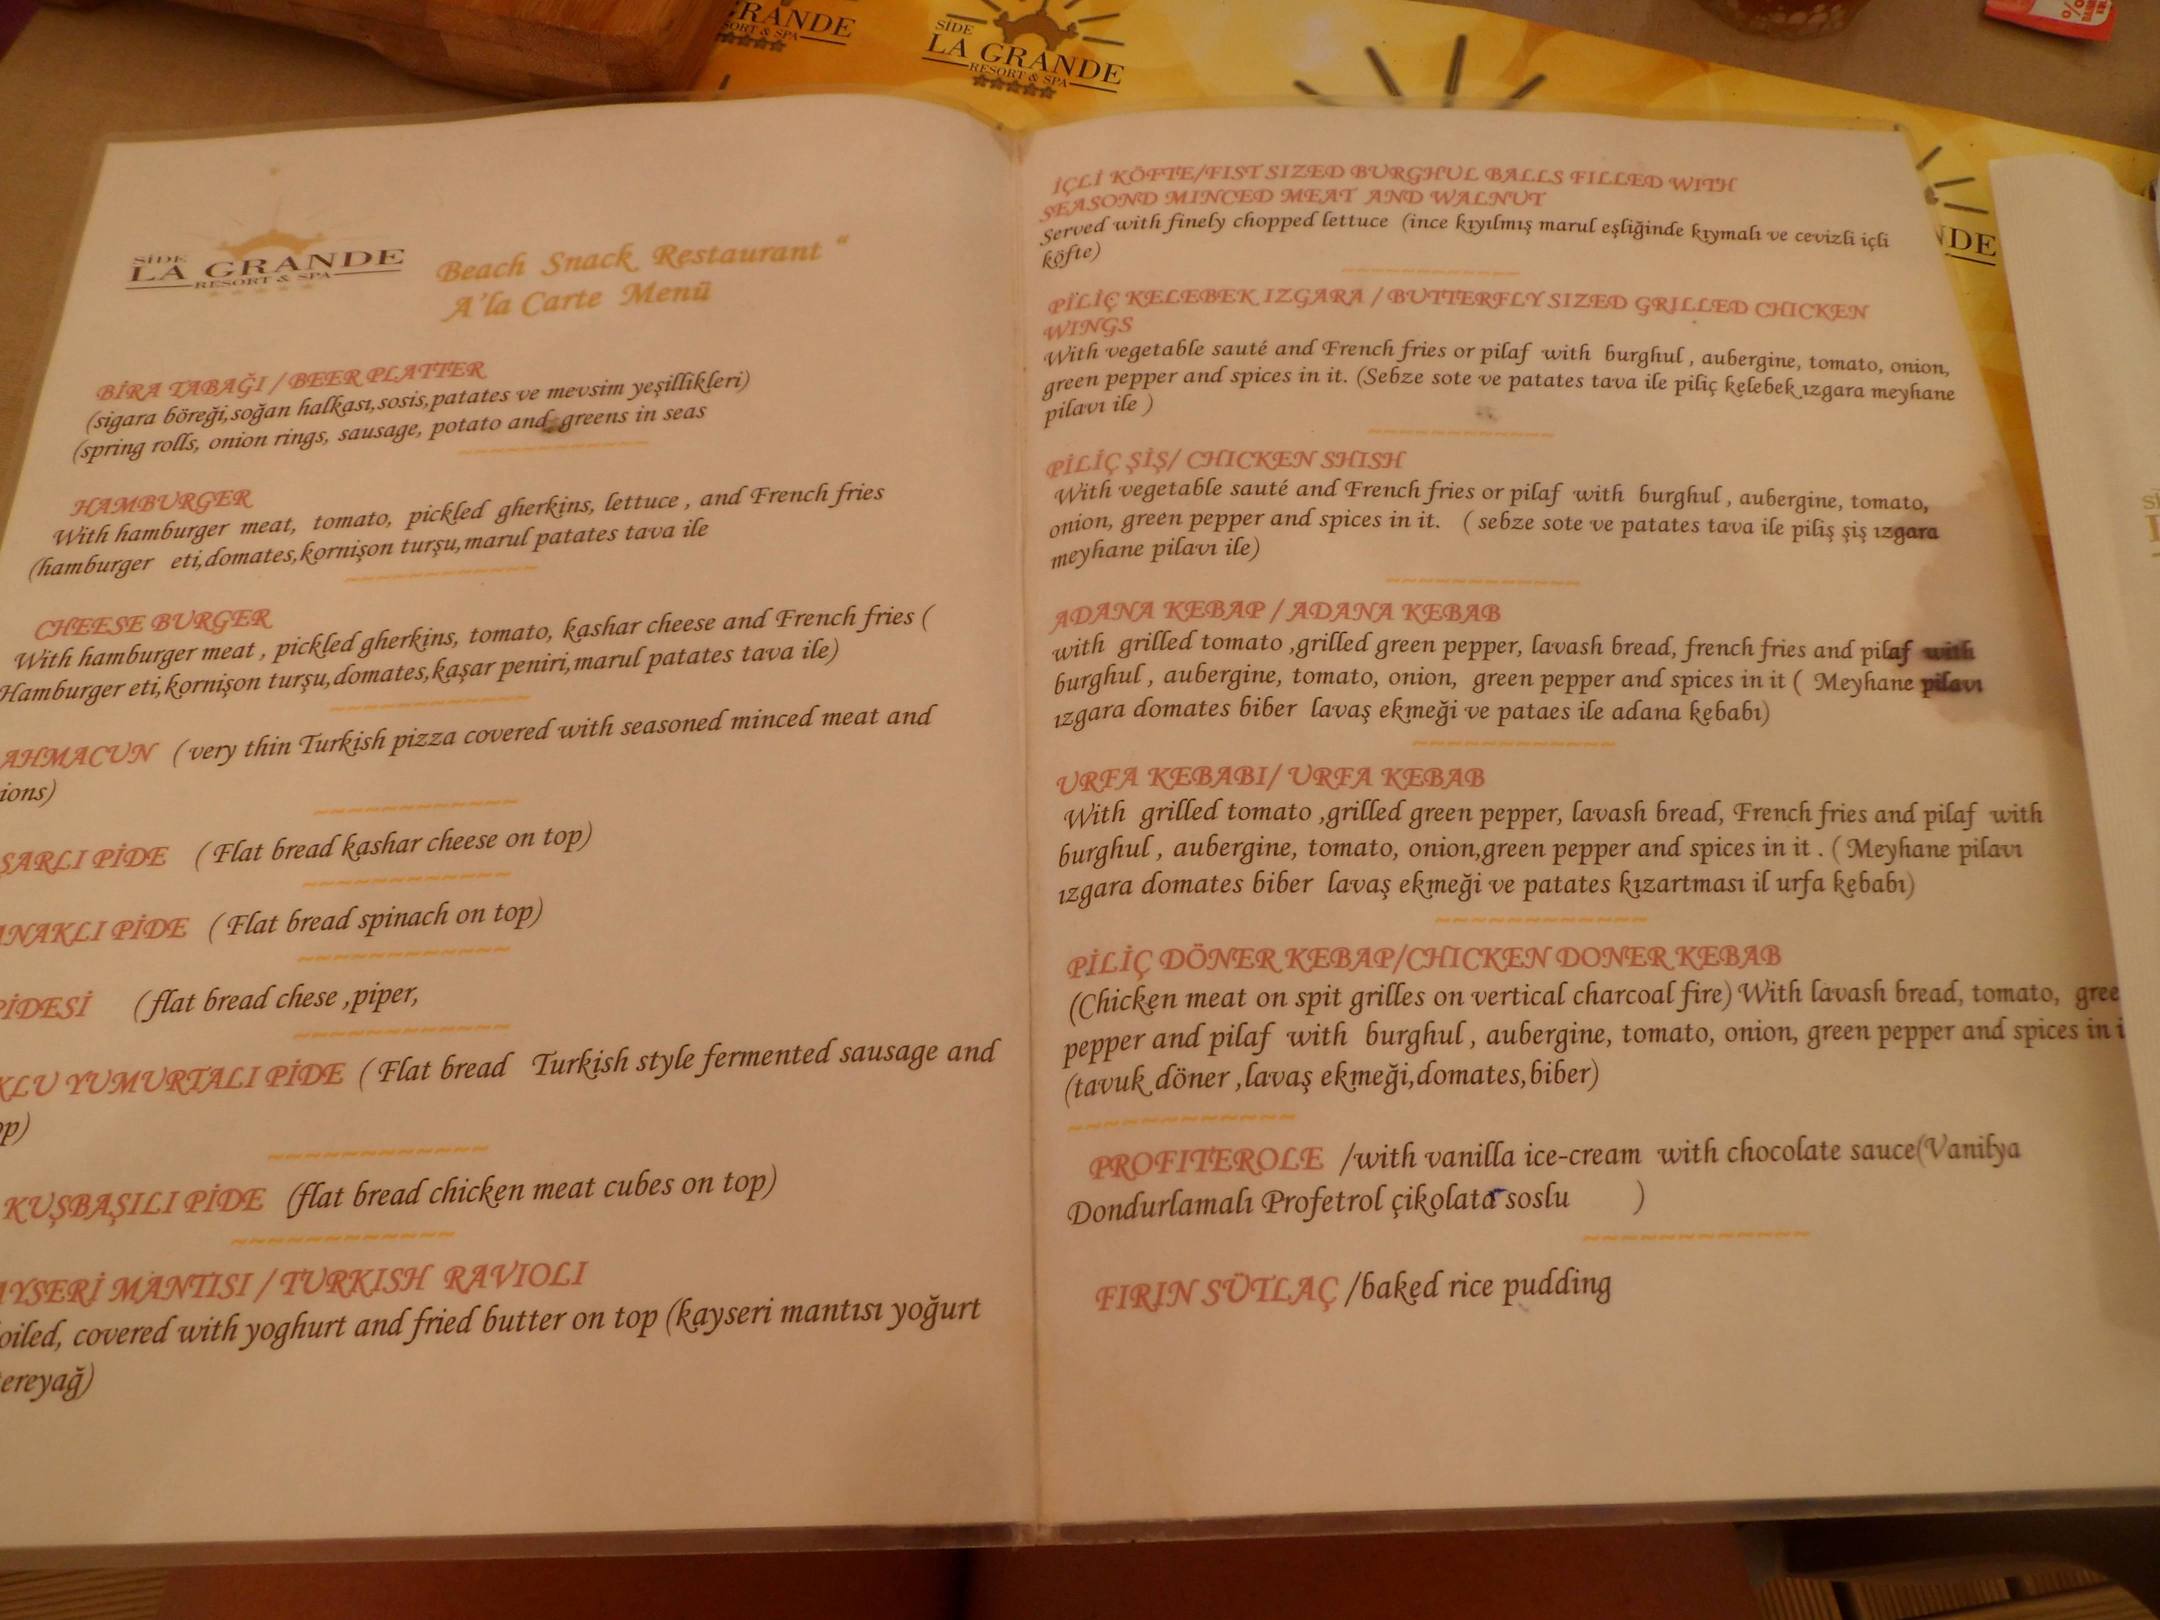 RANDE
ORT & SPA
SİDE
LA GRANDE
RESORT & SPA
NDE
SİDE
LA GRANDE
RESORT & SPA
Beach Snack Restaurant "
A'la Carte Menü
BİRA TABAĞI / BEER PLATTER
(sigara böreği,soğan halkası,sosis,patates ve mevsim yeşillikleri)
(spring rolls, onion rings, sausage, potato and greens in seas
HAMBURGER
With hamburger meat, tomato, pickled gherkins, lettuce , and French fries
(hamburger eti,domates,kornişon turşu,marul patates tava ile
CHEESE BURGER
With hamburger meat , pickled gherkins, tomato, kashar cheese and French fries (
Hamburger eti,kornişon turşu,domates,kaşar peniri,marul patates tava ile)
AHMACUN (very thin Turkish pizza covered with seasoned minced meat and
ions)
ŞARLI PİDE ( Flat bread kashar cheese on top)
ANAKLI PİDE ( Flat bread spinach on top)
PİDESİ (flat bread chese ,piper,
KLU YUMURTALI PİDE ( Flat bread Turkish style fermented sausage and
op)
KUŞBAŞILI PİDE (flat bread chicken meat cubes on top)
AYSERİ MANTISI / TURKISH RAVIOLI
oiled, covered with yoghurt and fried butter on top (kayseri mantısı yoğurt
tereyağ)
İÇLİ KÖFTE/FIST SIZED BURGHUL BALLS FILLED WITH
SEASOND MINCED MEAT AND WALNUT
Served with finely chopped lettuce (ince kıyılmış marul eşliğinde kıymalı ve cevizli içli
köfte)
PİLİÇ KELEBEK IZGARA / BUTTERFLY SIZED GRILLED CHICKEN
WINGS
With vegetable sauté and French fries or pilaf with burghul , aubergine, tomato, onion,
green pepper and spices in it. (Sebze sote ve patates tava ile piliç kelebek ızgara meyhane
pilavı ile )
PİLİÇ ŞİŞ/ CHICKEN SHISH
With vegetable sauté and French fries or pilaf with burghul , aubergine, tomato,
onion, green pepper and spices in it. ( sebze sote ve patates tava ile piliş şiş ızgara
meyhane pilavı ile)
ADANA KEBAP / ADANA KEBAB
with grilled tomato ,grilled green pepper, lavash bread, french fries and pilaf with
burghul , aubergine, tomato, onion, green pepper and spices in it ( Meyhane pilavı
ızgara domates biber lavaş ekmeği ve pataes ile adana kebabı)
URFA KEBABI/ URFA KEBAB
With grilled tomato ,grilled green pepper, lavash bread, French fries and pilaf with
burghul , aubergine, tomato, onion,green pepper and spices in it . ( Meyhane pilavı
ızgara domates biber lavaş ekmeği ve patates kızartması il urfa kebabı)
PİLİÇ DÖNER KEBAP/CHICKEN DONER KEBAB
(Chicken meat on spit grilles on vertical charcoal fire) With lavash bread, tomato, gree
pepper and pilaf with burghul , aubergine, tomato, onion, green pepper and spices in i
(tavuk döner ,lavaş ekmeği,domates,biber)
PROFITEROLE /with vanilla ice-cream with chocolate sauce(Vanilya
Dondurlamalı Profetrol çikolata soslu )
FIRIN SÜTLAÇ /baked rice pudding